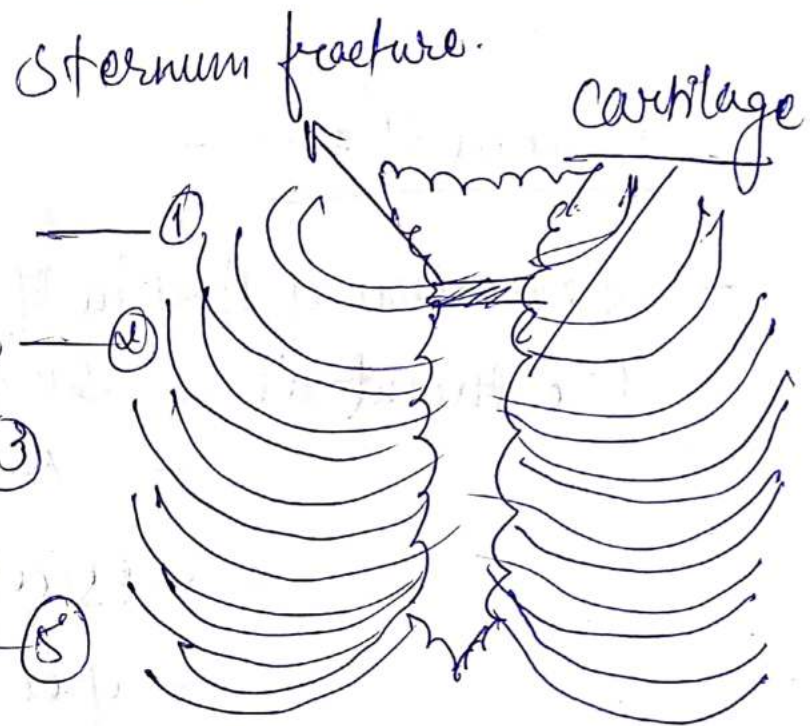 Sternum fracture.
Cartilage
①
②
③
⑤